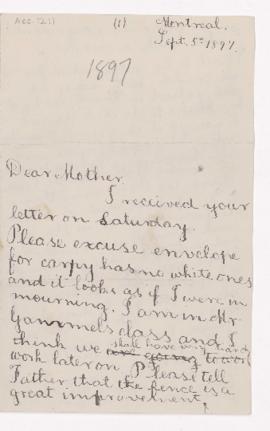 Acc. 211
(1)
Montreal.
Sept. 5th 1897.
1897
Dear Mother
I received your
letter on Saturday.
Please excuse envelope
for has no white ones
and it looks as if I were in
mourning. I am in Mr
class and I
shall have very hard
think we are going to work
work later on. Please tell
Father, that the fence is a
great improvement,